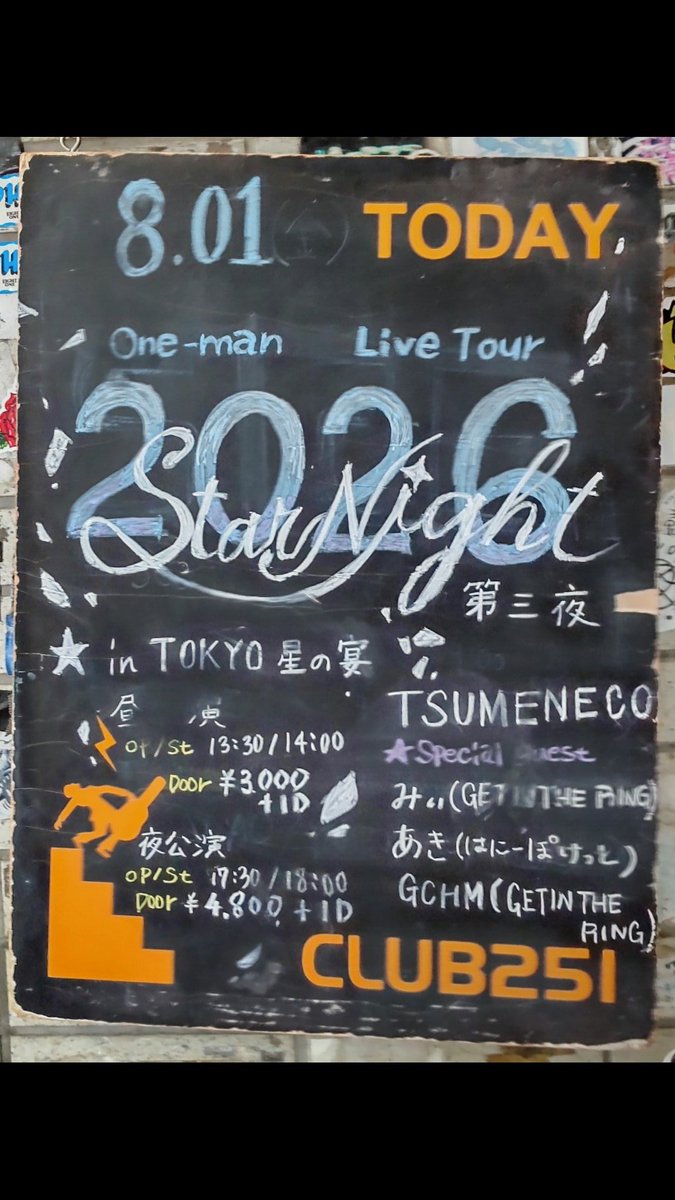 8.01
TODAY
One-man Live Tour
2026
StarNight
第三夜
★ in TOKYO 星の宴
昼
OP/St 13:30/14:00
Door ¥3,000
+1D
夜公演
OP/St 17:30/18:00
Door ¥4,800 +1D
TSUMENECO
★Special Guest
みぃ(GET IN THE RING)
あき(はにーぽけっと)
GCHM(GET IN THE
RING)
CLUB251